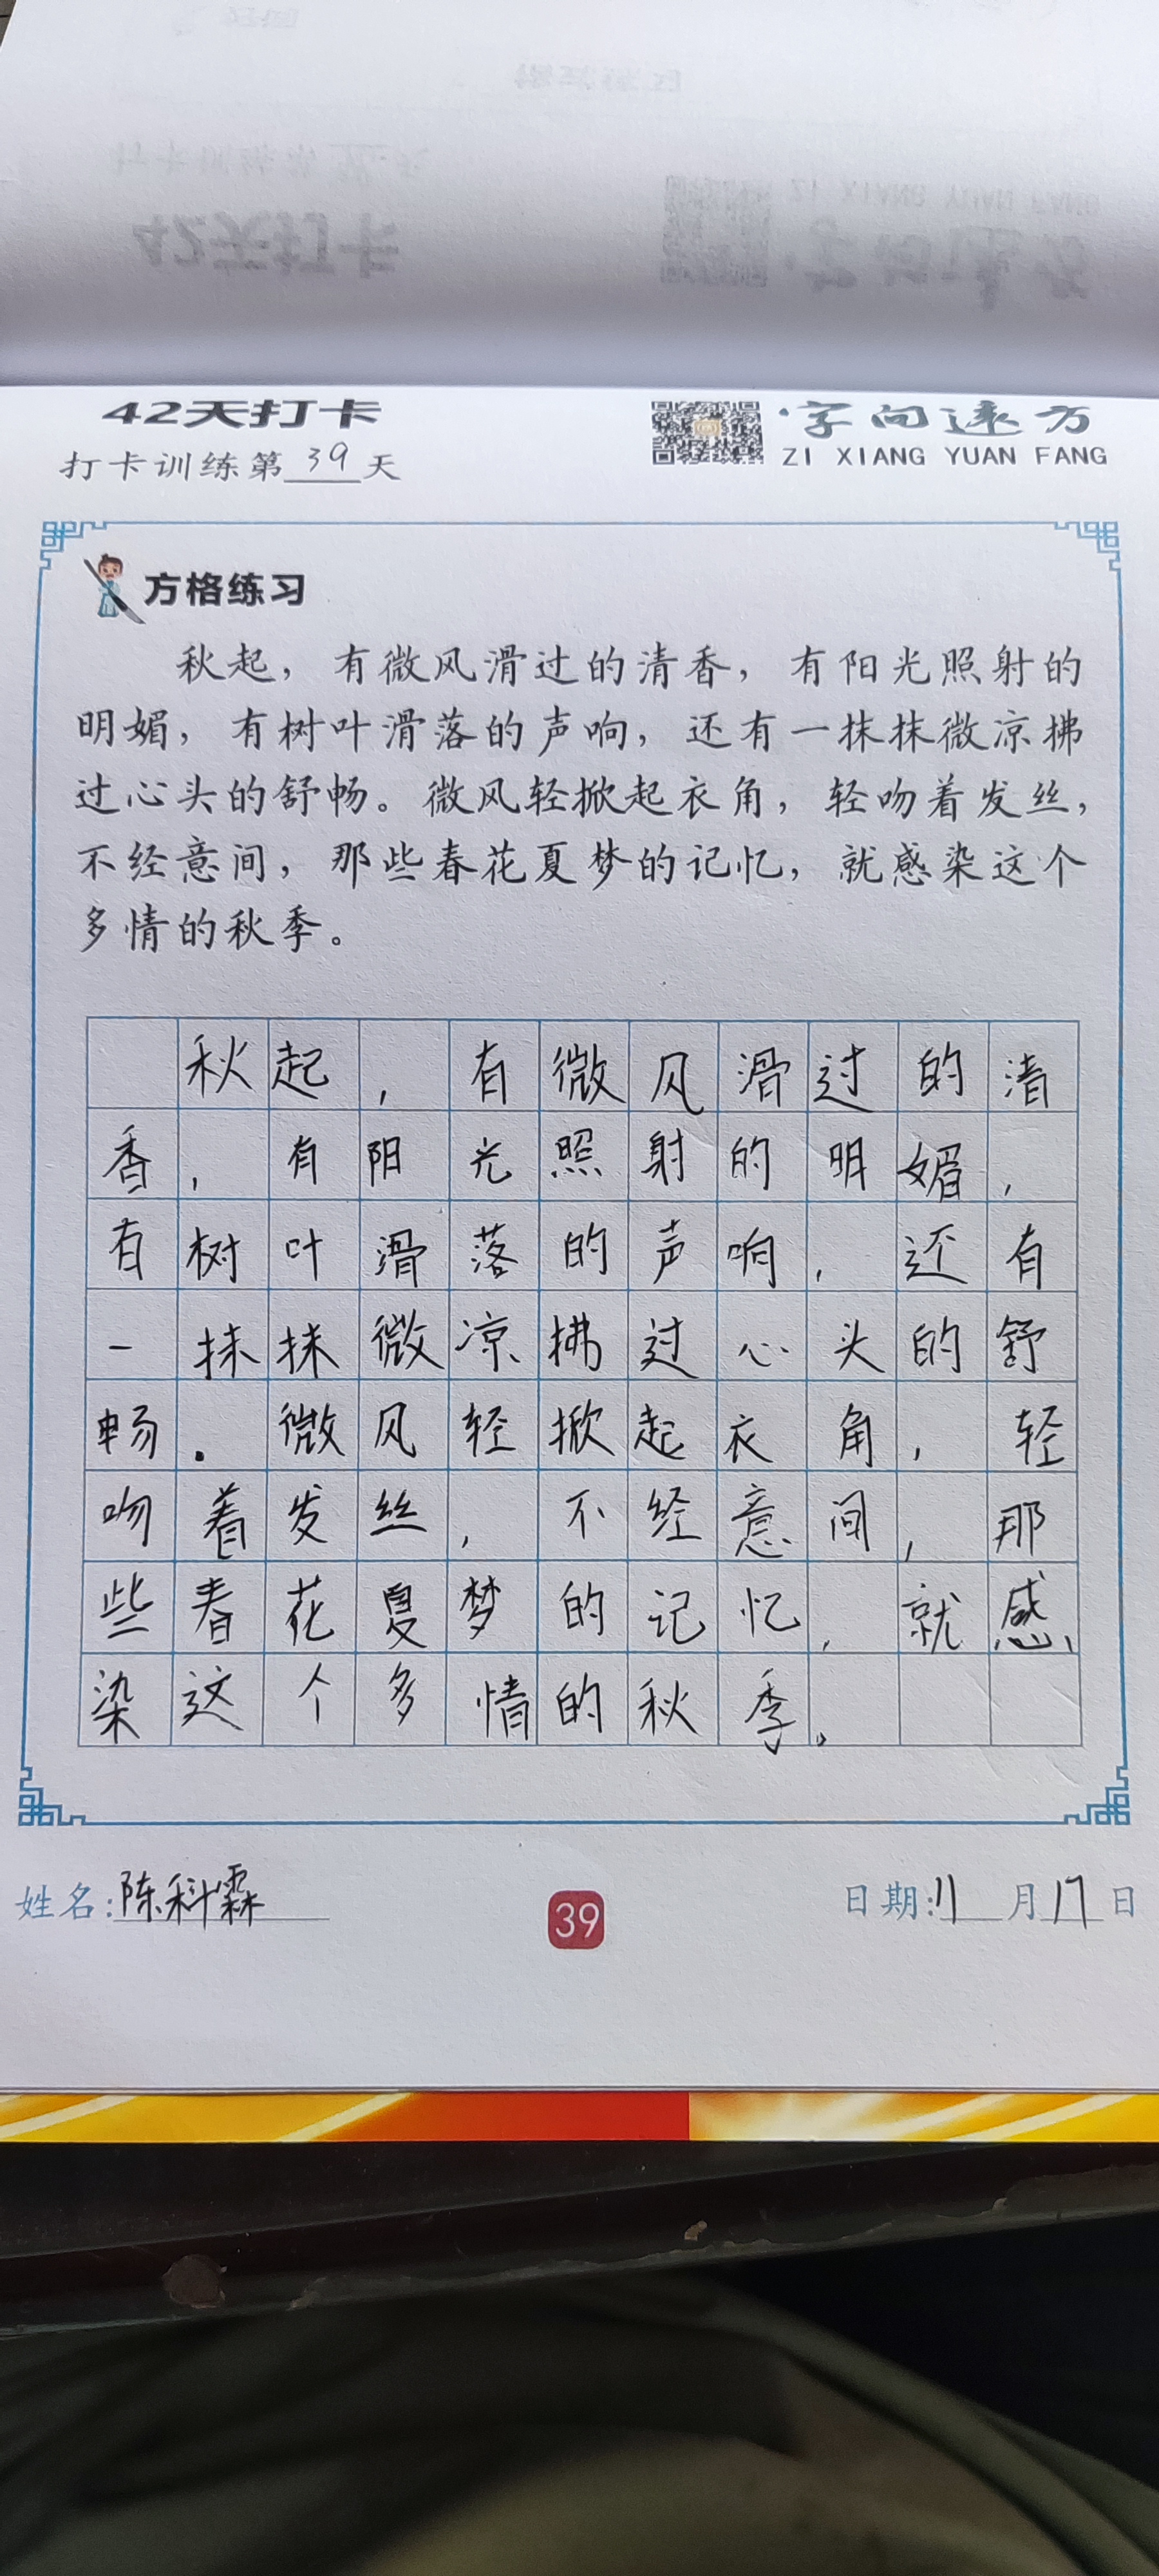 42天打卡
字向远方
打卡训练第39天
ZI XIANG YUAN FANG
方格练习
秋起，有微风滑过的清香，有阳光照射的
明媚，有树叶滑落的声响，还有一抹抹微凉拂
过心头的舒畅。微风轻掀起衣角，轻吻着发丝，
不经意间，那些春花夏梦的记忆，就感染这个
多情的秋季。
秋起，有微风滑过的清
香，有阳光照射的明媚，
有树叶滑落的声响，还有
一抹抹微凉拂过心头的舒
畅。微风轻掀起衣角，轻
吻着发丝，不经意间，那
些春花夏梦的记忆，就感
染这个多情的秋季。
姓名:陈科霖
39
日期:11月17日